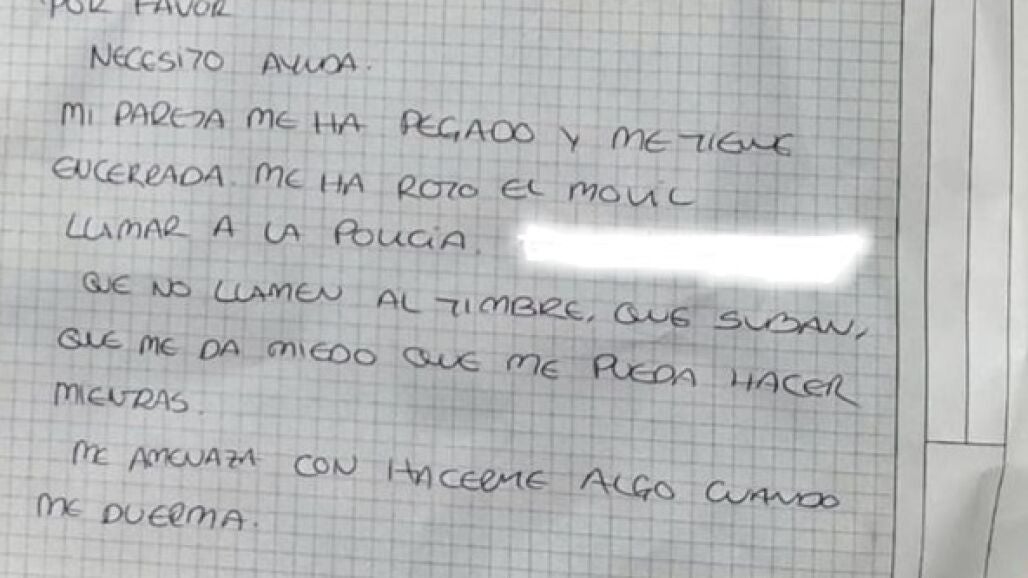 POR FAVOR
NECESITO AYUDA.
MI PAREJA ME HA PEGADO Y ME TIENE
ENCERRADA. ME HA ROTO EL MOVIL
LLAMAR A LA POLICIA.
QUE NO LLAMEN AL TIMBRE, QUE SUBAN,
QUE ME DA MIEDO QUE ME PUEDA HACER
MIENTRAS.
ME AMENAZA CON HACERME ALGO CUANDO
ME DUERMA.